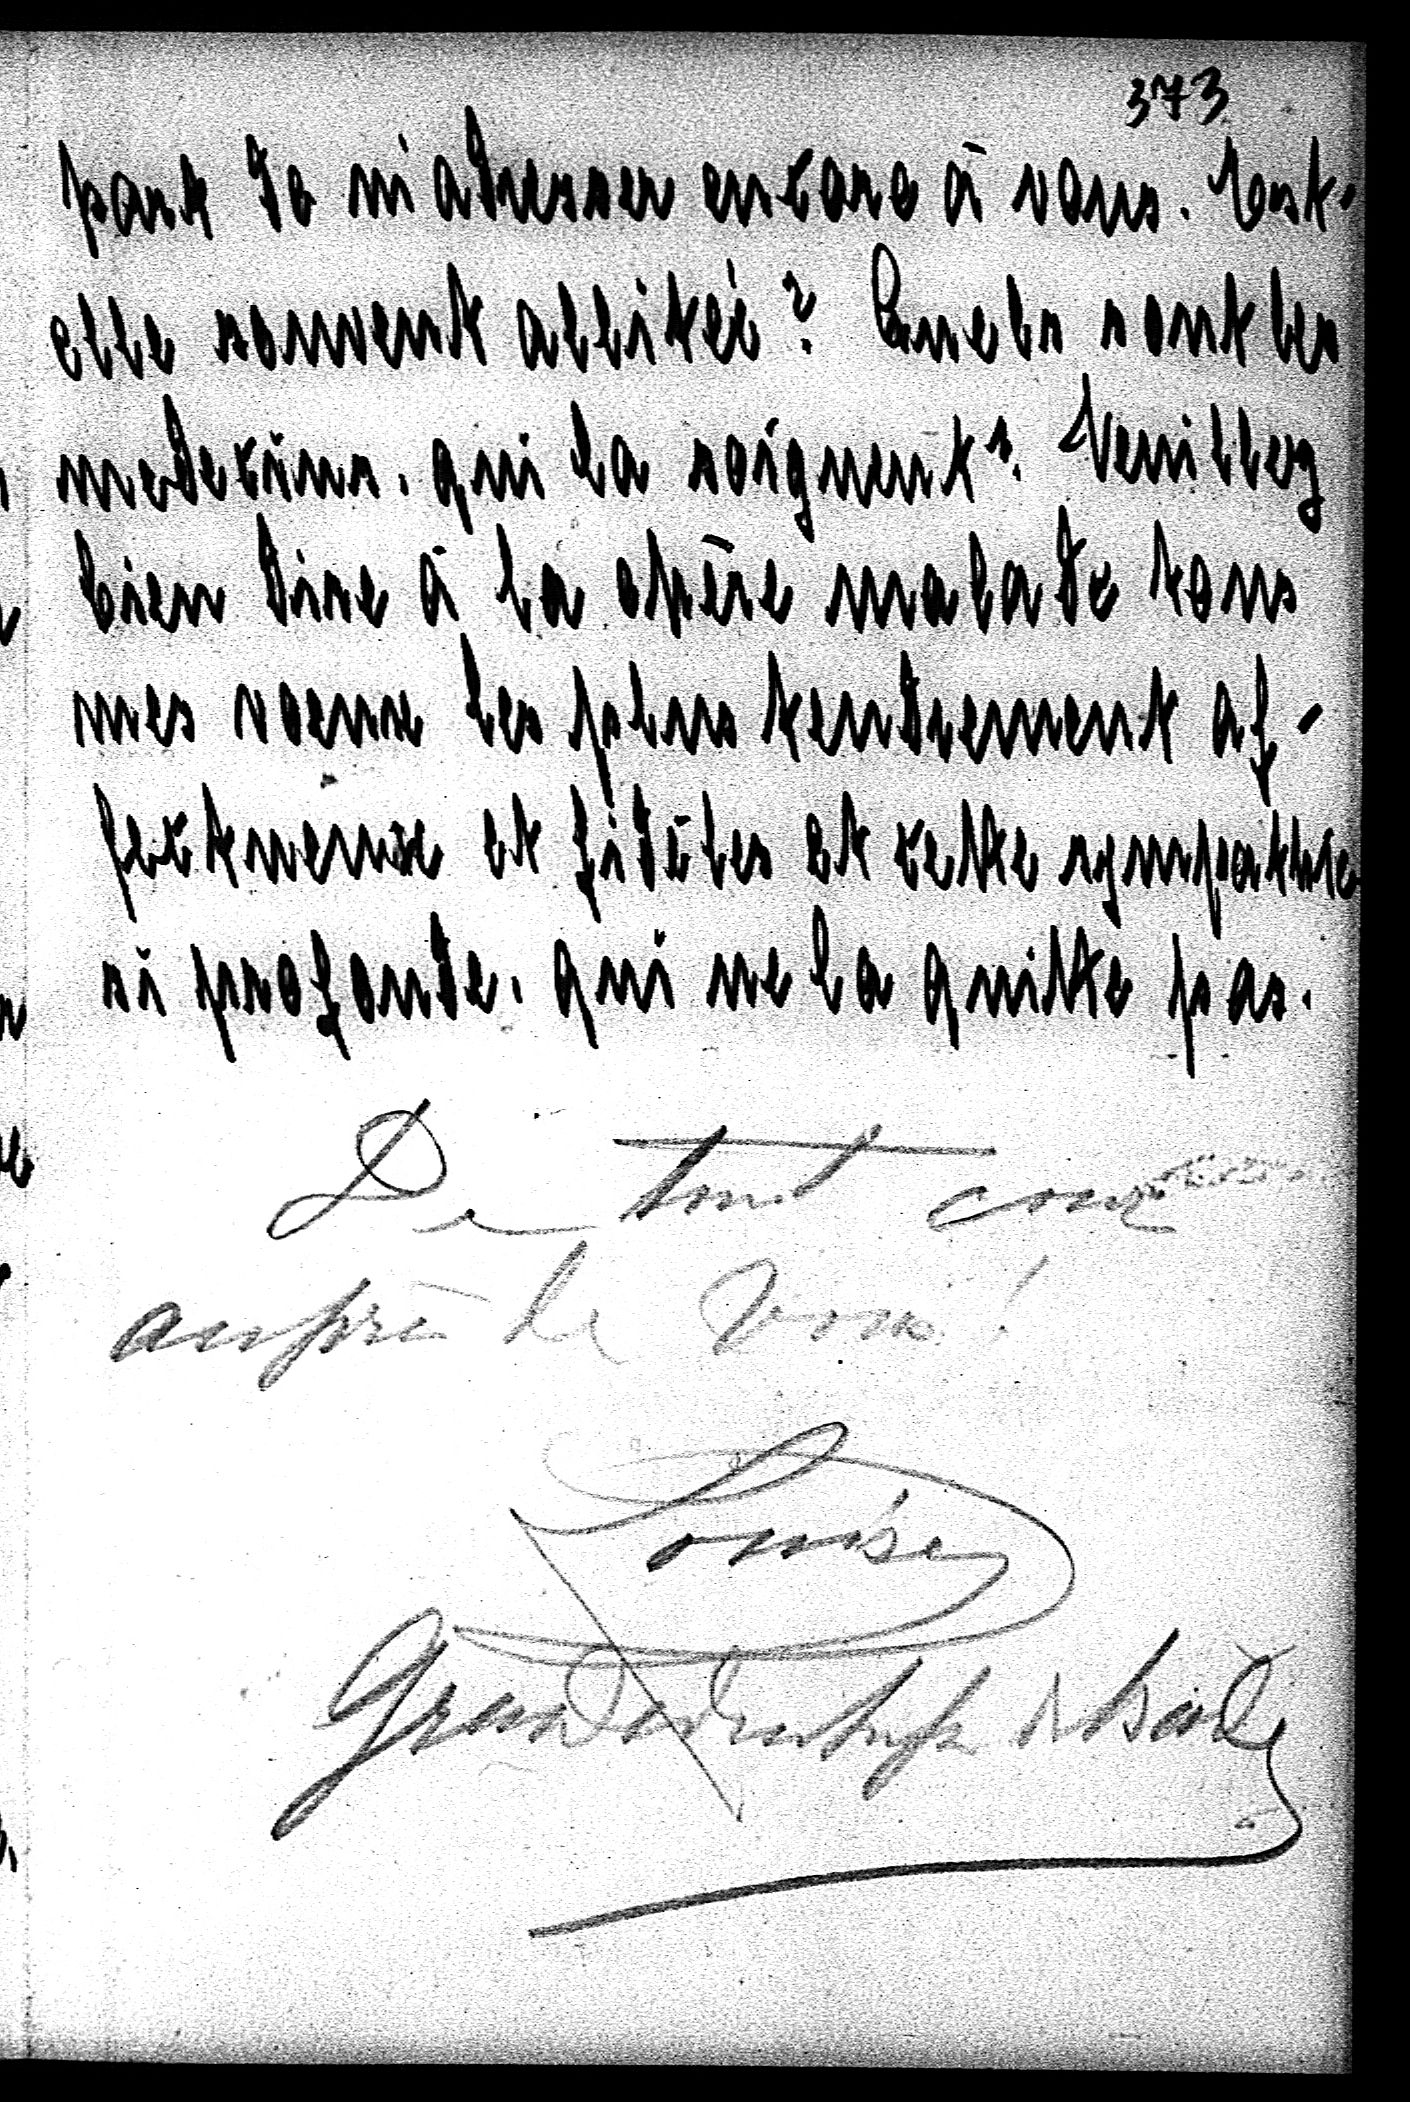 373
part de m'adresser encore à vous. Est-
elle souvent allitée? Quels sont les
medecins, qui la soignent? Veuillez
bien dire à la chère malade tous
mes voeux les plus tendrement af-
fectueux et fidèles et cette sympathie
si profonde, qui ne la quitte pas.
De tout coeur
auprès de Vous!
Louise
Grande duchesse de Bade